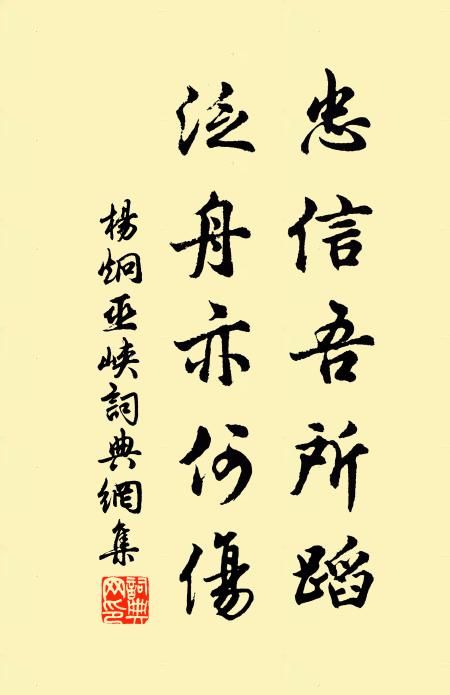 忠信吾所蹈
泛舟亦何傷
楊炯巫峽詞典網集
詞典網印